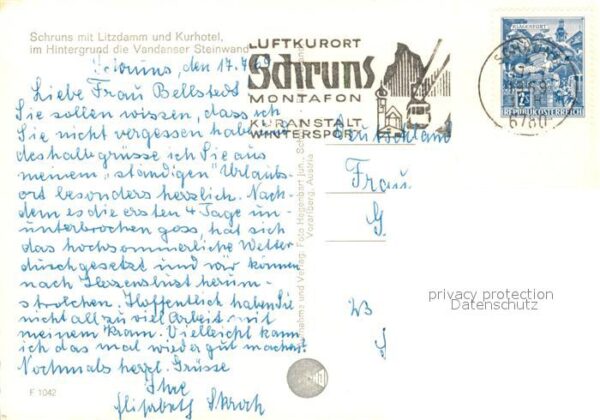 Schruns mit Litzdamm und Kurhotel,
im Hintergrund die Vandanser Steinwand
Schruns, den 17.7.69
Liebe Frau Bellstedt
Sie sollen wissen, dass ich
Sie nicht vergessen habe u.
deshalb grüsse ich Sie aus
meinem „ständigen" Urlaubs-
ort besonders herzlich. Nach-
dem es die ersten 4 Tage un-
unterbrochen goss hat sich
das hochsommerliche Wetter
durchgesetzt und wir können
nach Herzenslust herum-
strolchen. Hoffentlich haben Sie
nicht all zu viel Arbeit mit
meinem Kram. Vielleicht kann
ich das mal wieder gut machen.
Nochmals herzl. Grüsse
Ihre
Elisabeth
F 1042
LUFTKURORT
Schruns
MONTAFON
KURANSTALT
WINTERSPORT
KLAGENFURT
REPUBLIK ÖSTERREICH
SCHRUNS
6780
Deutschland
Frau
G.
Aufnahme und Verlag: Foto Hegenbart jun., Schruns
Vorarlberg, Austria
privacy protection
Datenschutz